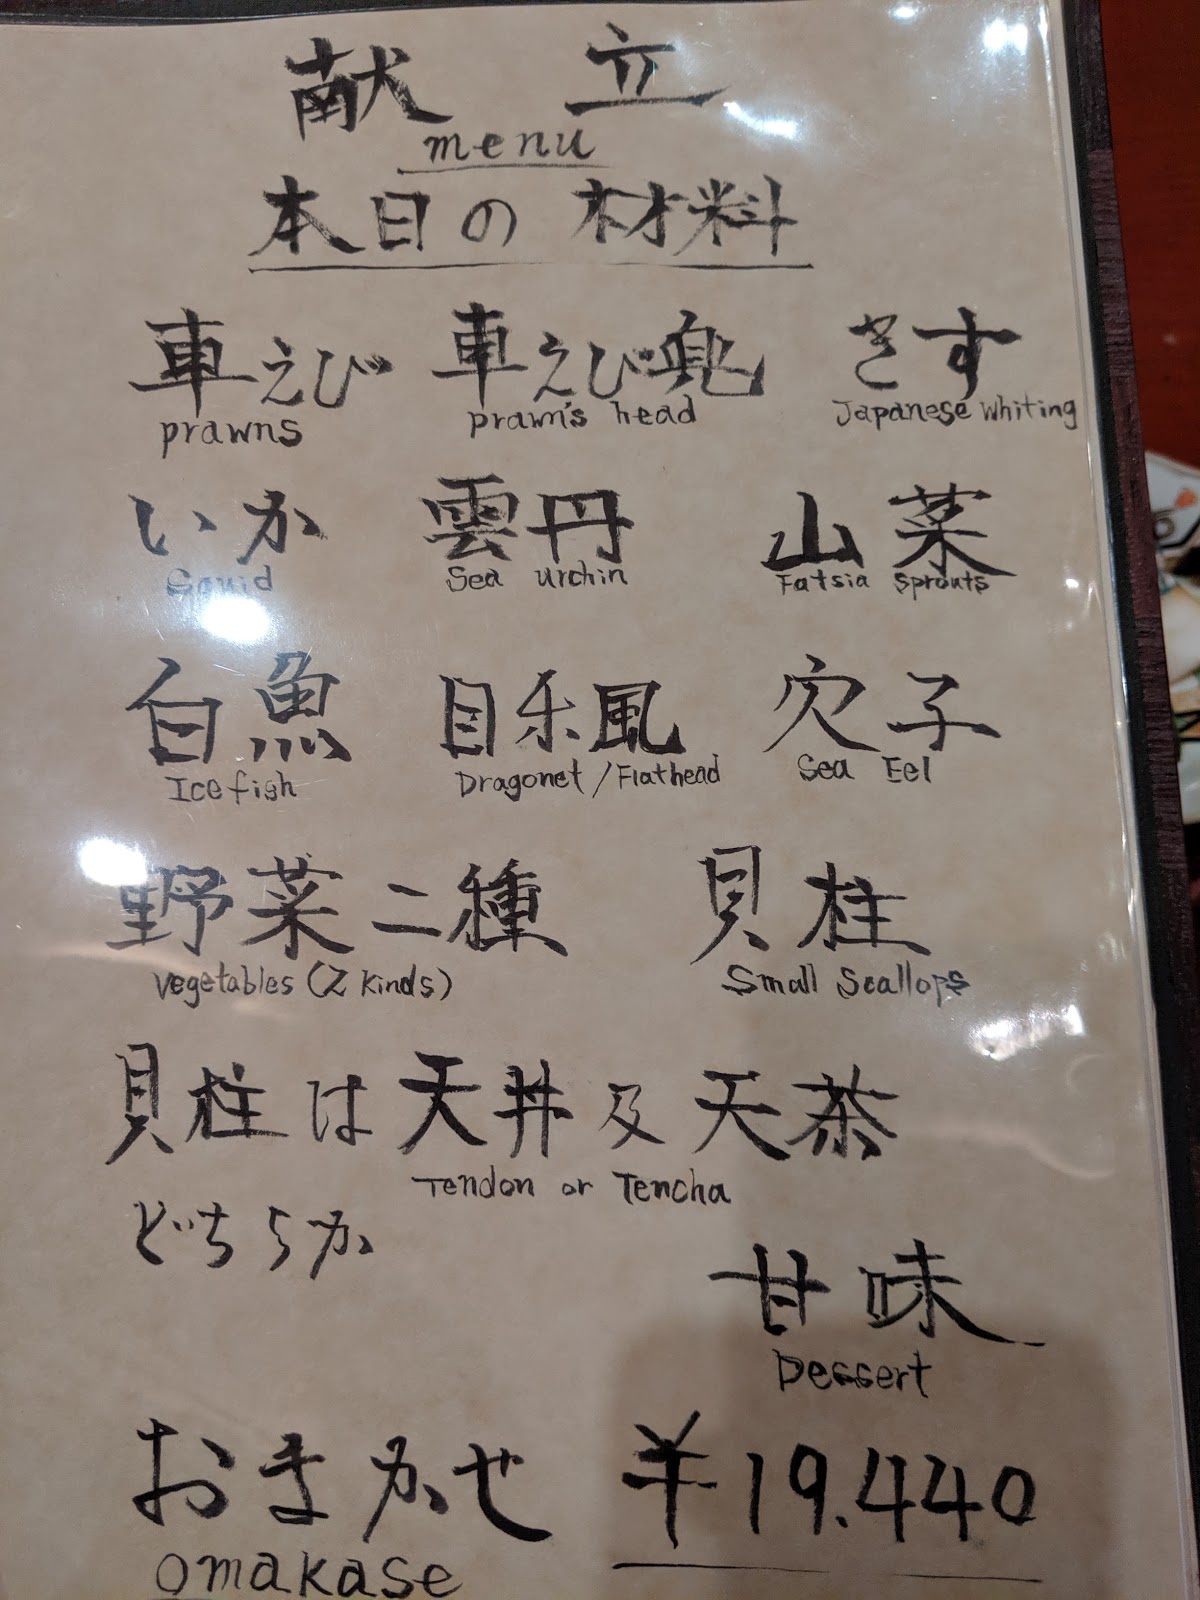 献立
menu
本日の材料
車えび 車えび兜 きす
prawns prawn's head Japanese whiting
いか 雲丹 山菜
Squid Sea urchin Fatsia sprouts
白魚 目乐風 穴子
Ice fish Dragonet / Flathead Sea Eel
野菜二種 貝柱
vegetables (2 kinds) Small Scallops
貝柱は天丼及天茶
Tendon or Tencha
どちらか
甘味
Dessert
おまかせ ¥19.440
omakase